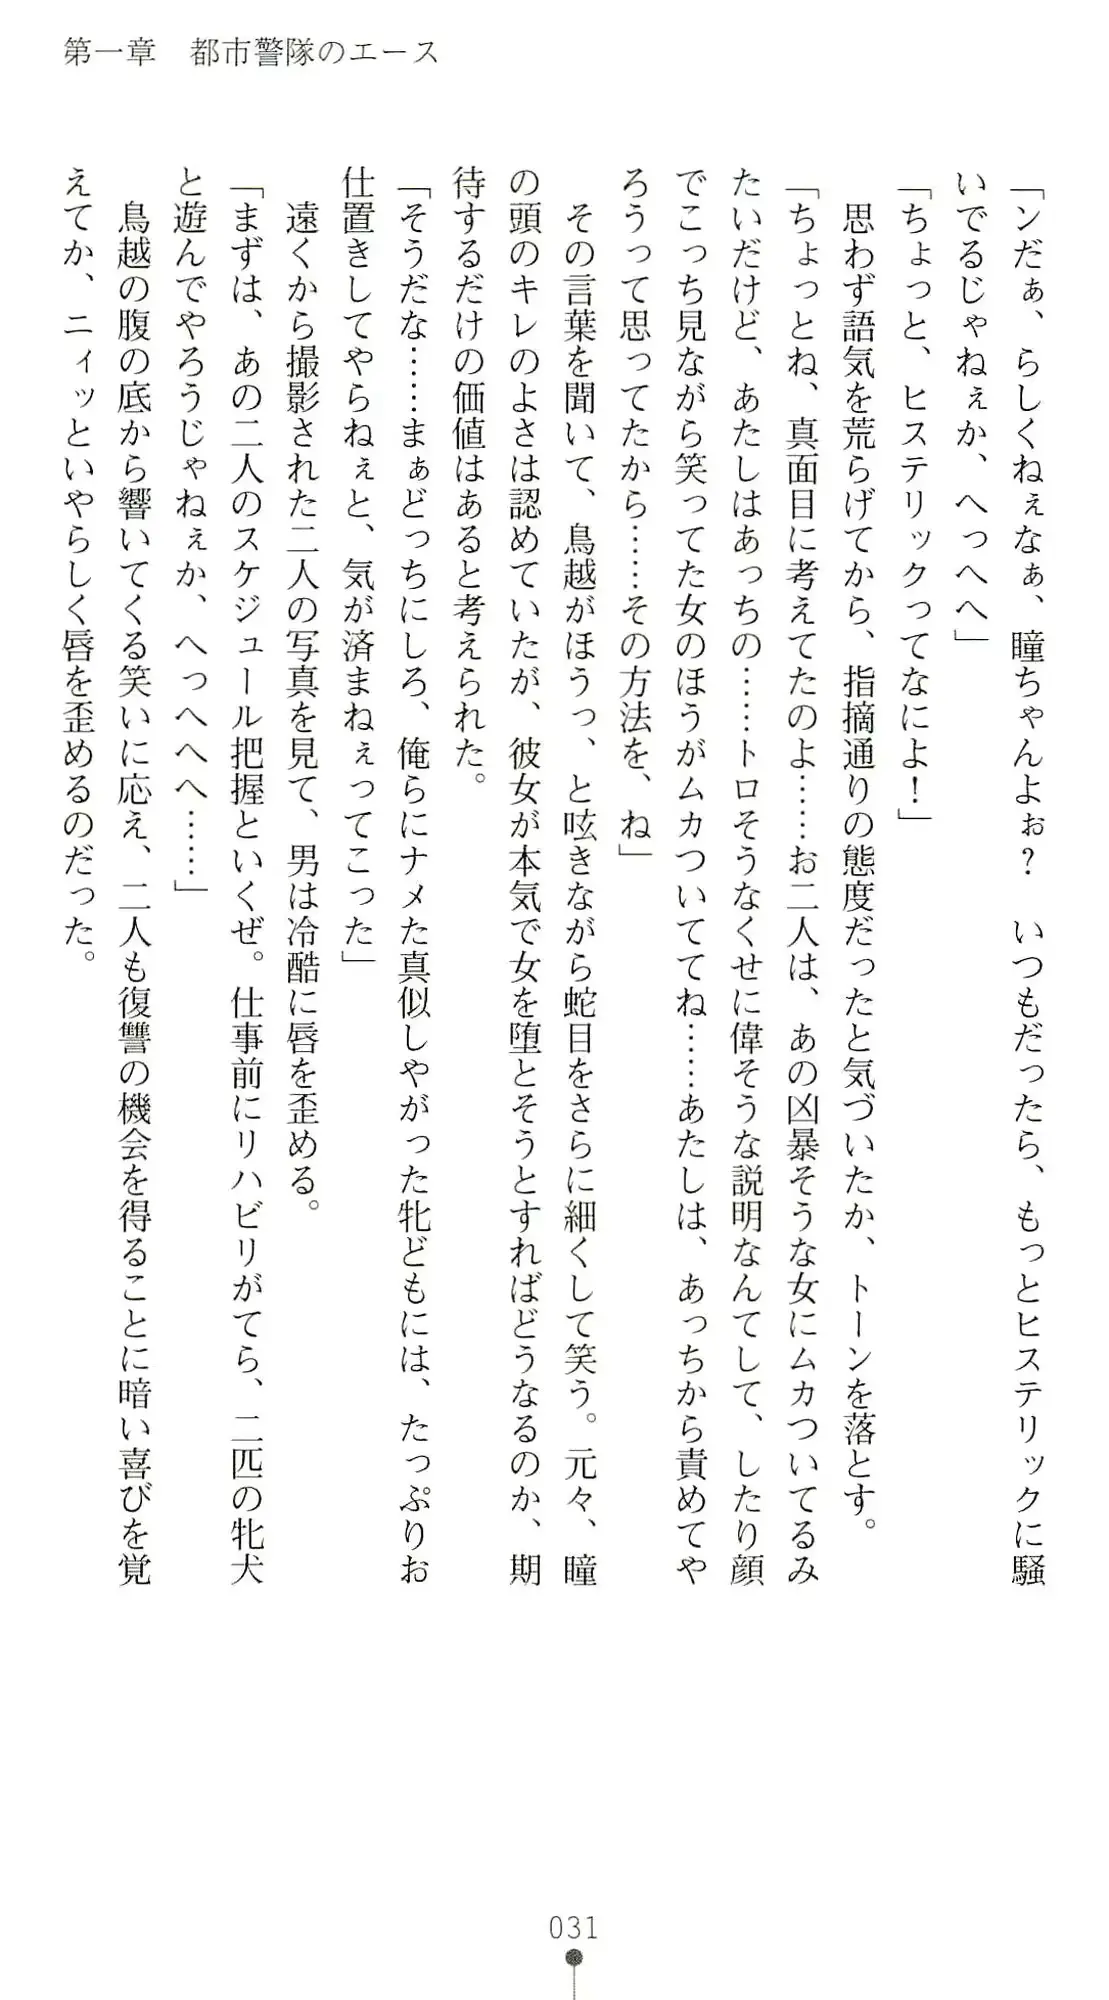 第一章　都市警隊のエース
「ンだぁ、らしくねぇなぁ、瞳ちゃんよぉ？　いつもだったら、もっとヒステリックに騒
いでるじゃねぇか、へっへへ」
「ちょっと、ヒステリックってなによ！」
　思わず語気を荒らげてから、指摘通りの態度だったと気づいたか、トーンを落とす。
「ちょっとね、真面目に考えてたのよ……お二人は、あの凶暴そうな女にムカついてるみ
たいだけど、あたしはあっちの……トロそうなくせに偉そうな説明なんてして、したり顔
でこっち見ながら笑ってた女のほうがムカついててね……あたしは、あっちから責めてや
ろうって思ってたから……その方法を、ね」
　その言葉を聞いて、鳥越がほうっ、と呟きながら蛇目をさらに細くして笑う。元々、瞳
の頭のキレのよさは認めていたが、彼女が本気で女を堕とそうとすればどうなるのか、期
待するだけの価値はあると考えられた。
「そうだな……まぁどっちにしろ、俺らにナメた真似しやがった牝どもには、たっぷりお
仕置きしてやらねぇと、気が済まねぇってこった」
　遠くから撮影された二人の写真を見て、男は冷酷に唇を歪める。
「まずは、あの二人のスケジュール把握といくぜ。仕事前にリハビリがてら、二匹の牝犬
と遊んでやろうじゃねぇか、へっへへへ……」
　鳥越の腹の底から響いてくる笑いに応え、二人も復讐の機会を得ることに暗い喜びを覚
えてか、ニィッといやらしく唇を歪めるのだった。
031